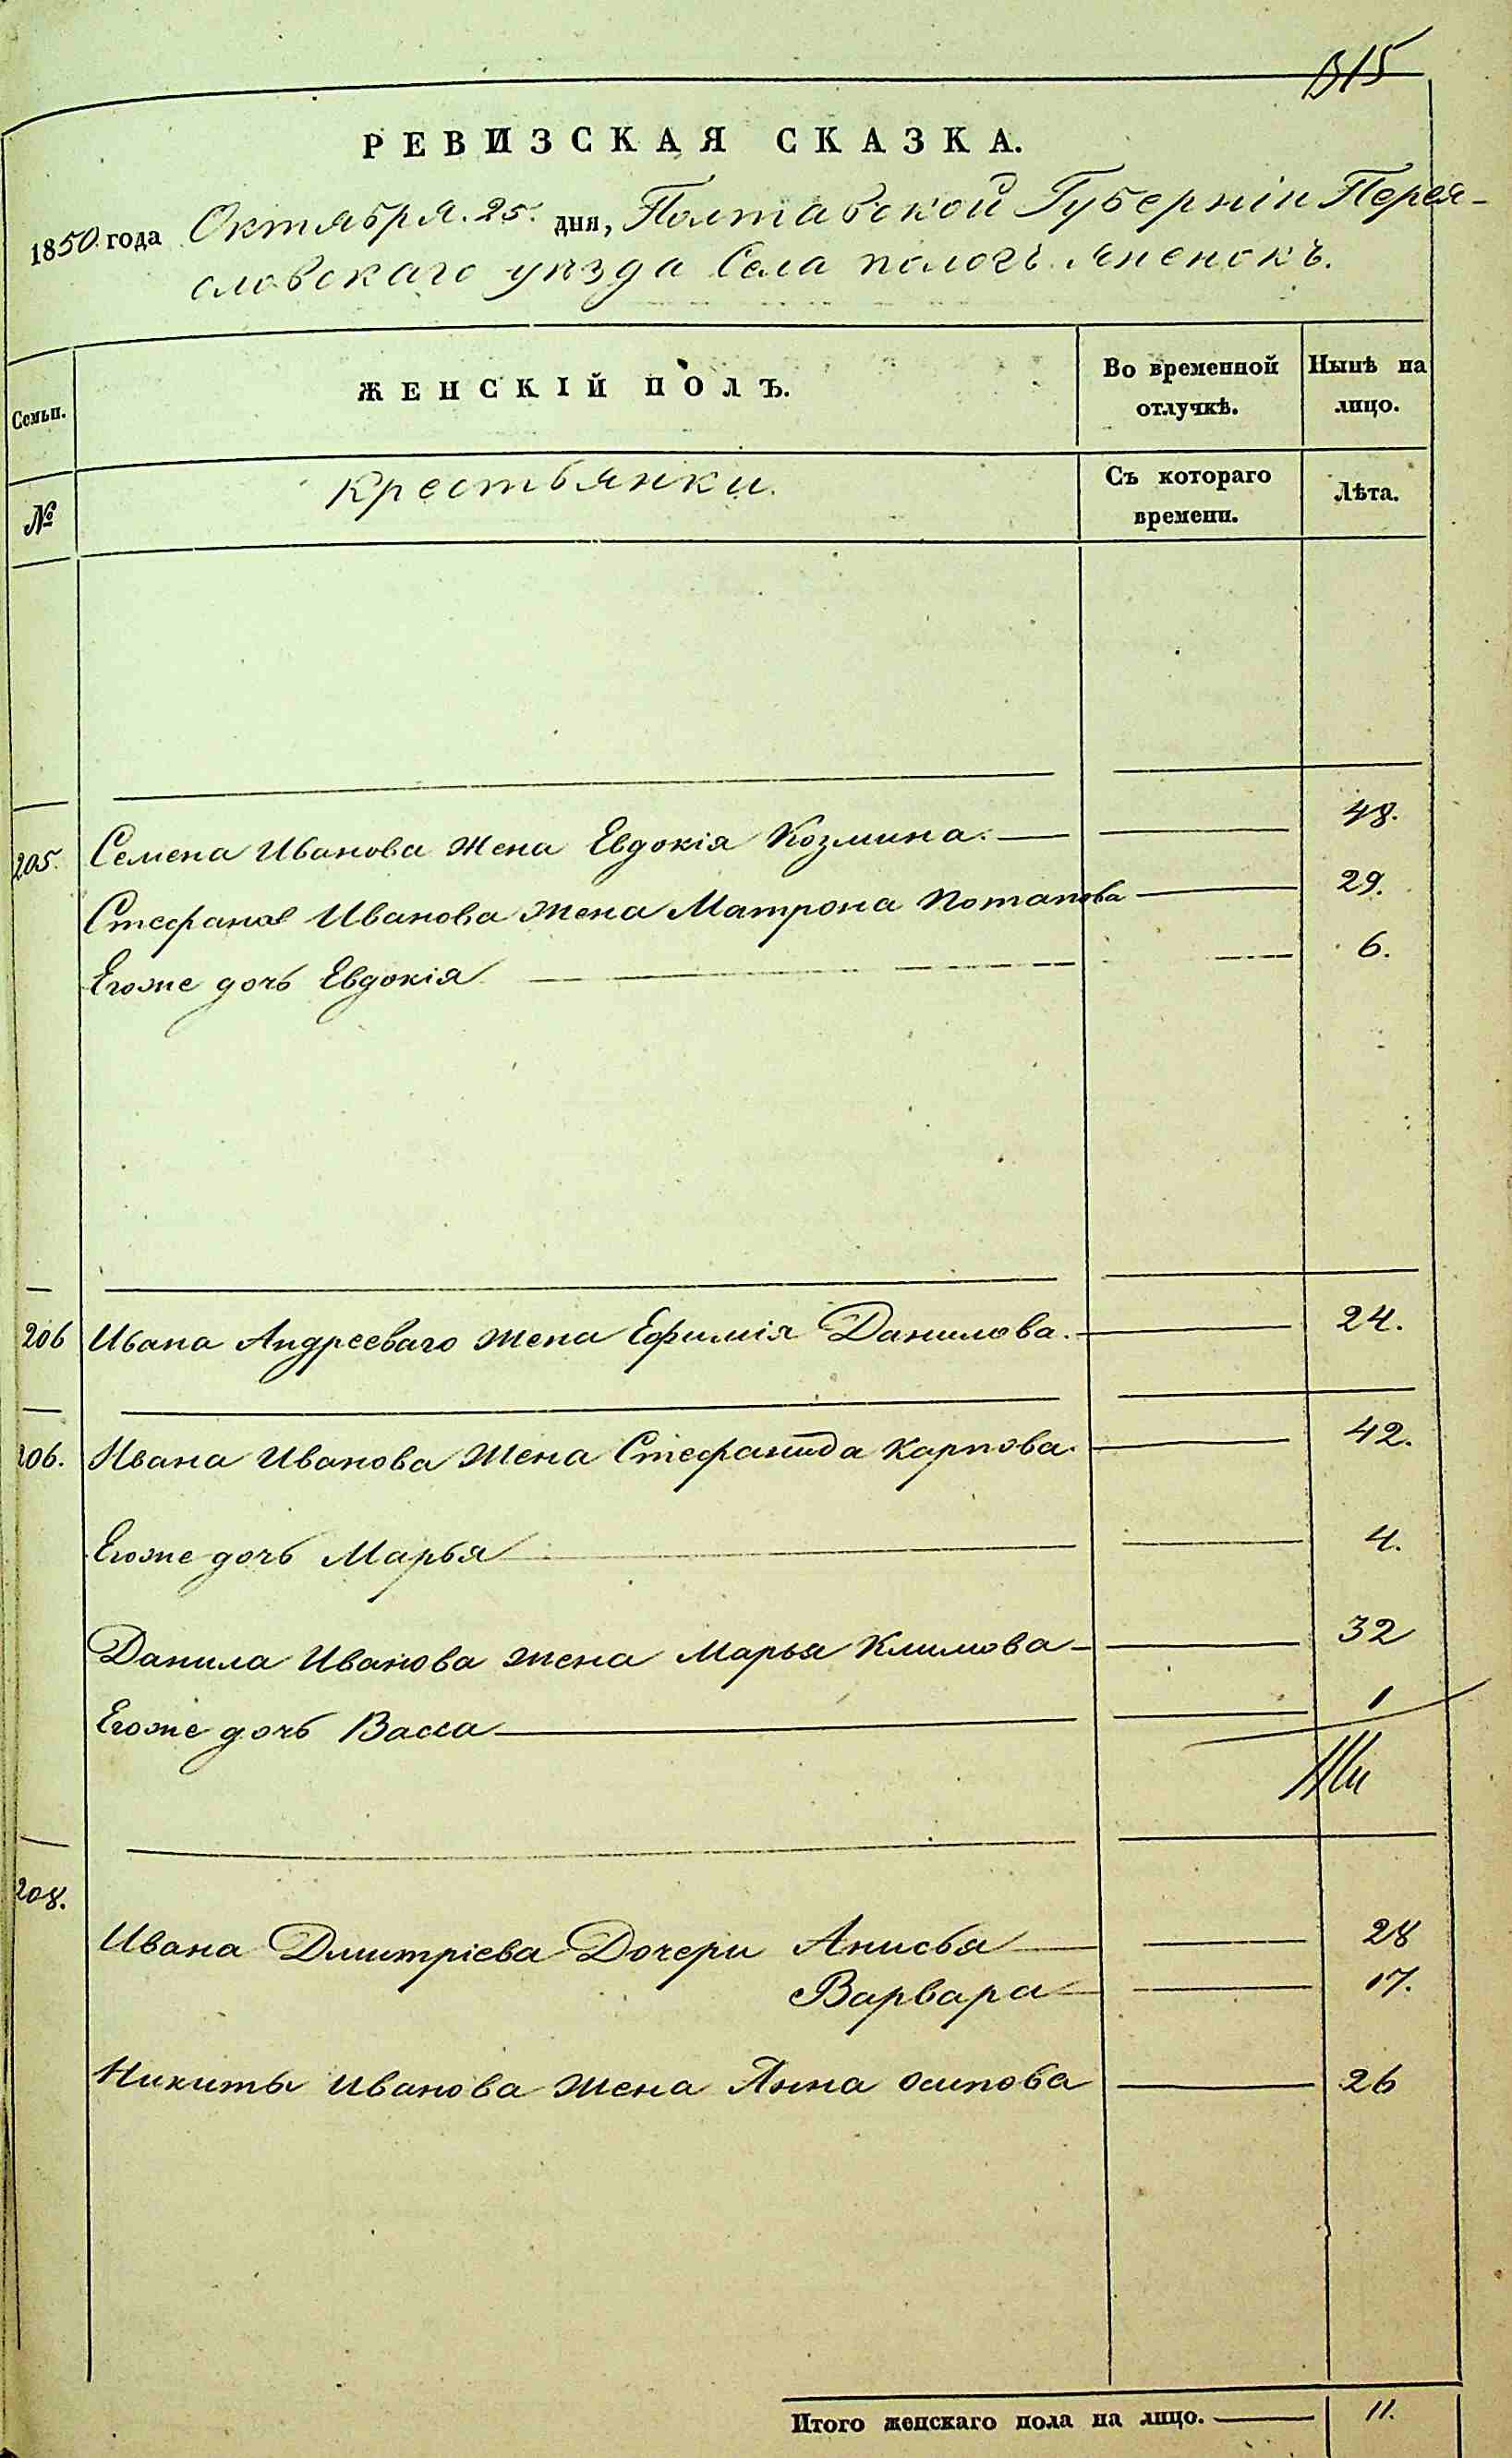 315
РЕВИЗСКАЯ СКАЗКА.
1850 года Октября. 25. дня, Полтавской Губерніи Перея-
словскаго уѣзда Села пологъ яненокъ.
Семьи. ЖЕНСКІЙ ПОЛЪ. Во временной отлучкѣ. Нынѣ на лицо.
№ Крестьянки. Съ котораго времени. Лѣта.
205. Семена Иванова жена Евдокія Козмина. 48.
Стефана Иванова жена Матрона Потапова 29.
Егоже дочь Евдокія 6.
206 Ивана Андрееваго жена Ефимія Данилова. 24.
206. Ивана Иванова жена Стефанида Карпова. 42.
Егоже дочь Марья 4.
Данила Иванова жена Марья Климова 32
Егоже дочь Васса 1
208.
Ивана Дмитріева Дочери Анисья 28
Варвара 17.
Никиты Иванова жена Анна Осипова 26
Итого женскаго пола на лицо. 11.